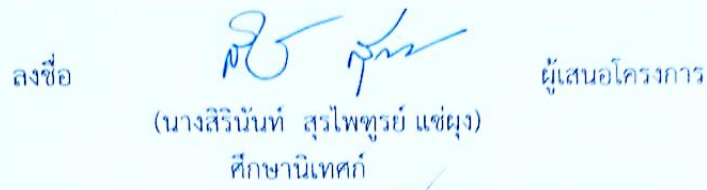 ลงชื่อ ผู้เสนอโครงการ
(นางสิรินันท์ สุรไพฑูรย์ แซ่ผุง)
ศึกษานิเทศก์